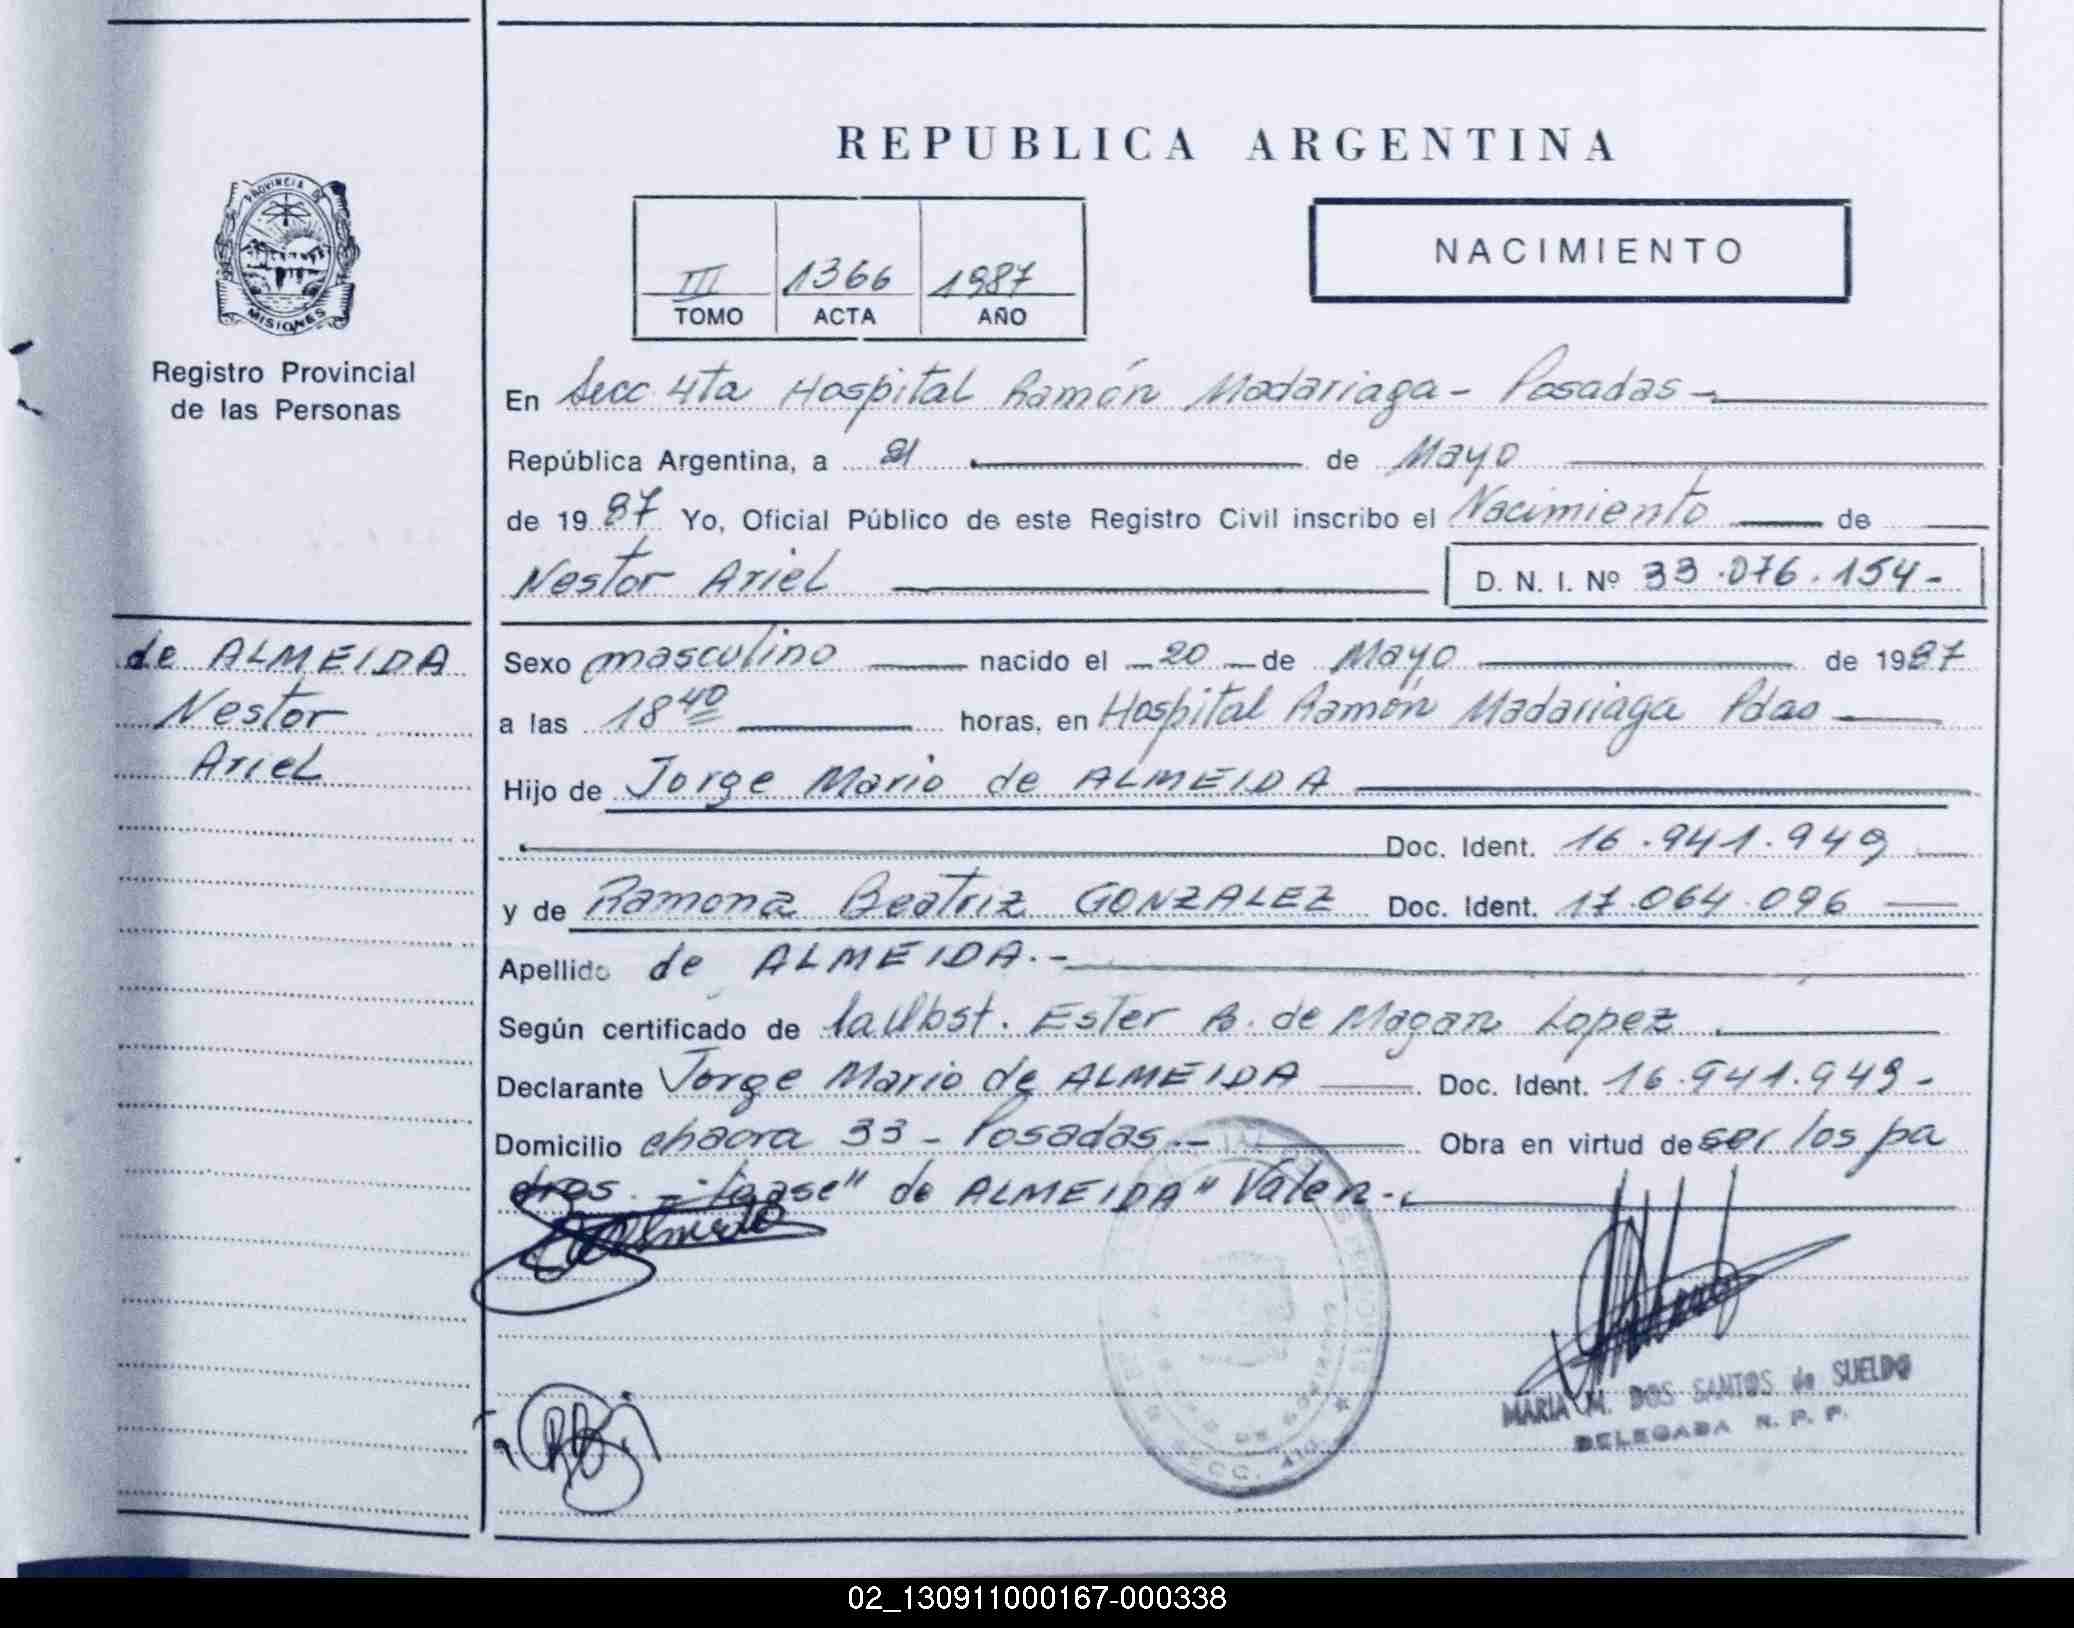 PROVINCIA DE
MISIONES
Registro Provincial
de las Personas
de ALMEIDA
Nestor
Ariel
REPUBLICA ARGENTINA
III 1366 1987
TOMO ACTA AÑO
NACIMIENTO
En Secc 4ta Hospital Ramón Madariaga - Posadas -
República Argentina, a 21 de Mayo
de 1987 Yo, Oficial Público de este Registro Civil inscribo el Nacimiento de
Nestor Ariel D. N. I. Nº 33.076.154-
Sexo masculino nacido el 20 de Mayo de 1987
a las 18 40 horas, en Hospital Ramón Madariaga Pdas
Hijo de Jorge Mario de ALMEIDA
Doc. Ident. 16.941.949
y de Ramona Beatriz GONZALEZ Doc. Ident. 17.064.096
Apellido de ALMEIDA.-
Según certificado de la Obst. Ester B. de Magan Lopez
Declarante Jorge Mario de ALMEIDA Doc. Ident. 16.941.949-
Domicilio chacra 33 - Posadas.- Obra en virtud de ser los pa
dres - "de ALMEIDA" Valen.-
SECC. 4ta.
MARIA M. DOS SANTOS de SUELDO
DELEGADA R. P. P.
02_130911000167-000338